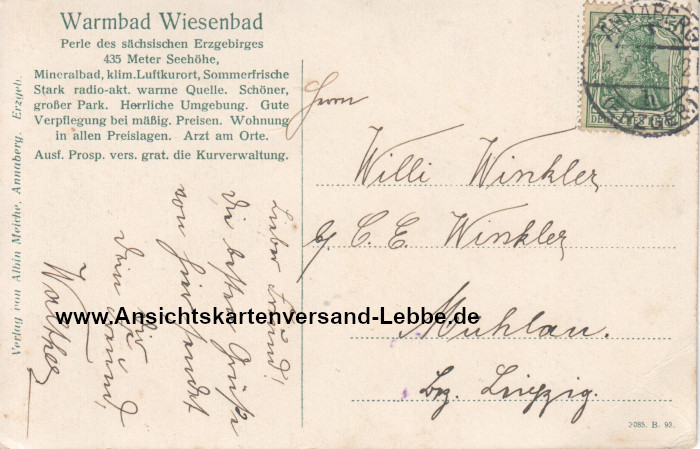 Warmbad Wiesenbad
Perle des sächsischen Erzgebirges
435 Meter Seehöhe,
Mineralbad, klim.Luftkurort, Sommerfrische
Stark radio-akt. warme Quelle. Schöner,
großer Park. Herrliche Umgebung. Gute
Verpflegung bei mäßig. Preisen. Wohnung
in allen Preislagen. Arzt am Orte.
Ausf. Prosp. vers. grat. die Kurverwaltung.
Verlag von Albin Meiche, Annaberg. Erzgeb.
Lieber Freund!
Die besten Grüße
von hier sendet
Dir
Dein Freund,
Walther
Herrn
Willi Winkler
b/ C. E. Winkler
Mühlau.
Bz. Leipzig.
ANNABERG
(ERZGEB.)
DEUTSCHES REICH
2085. B. 92.
www.Ansichtskartenversand-Lebbe.de